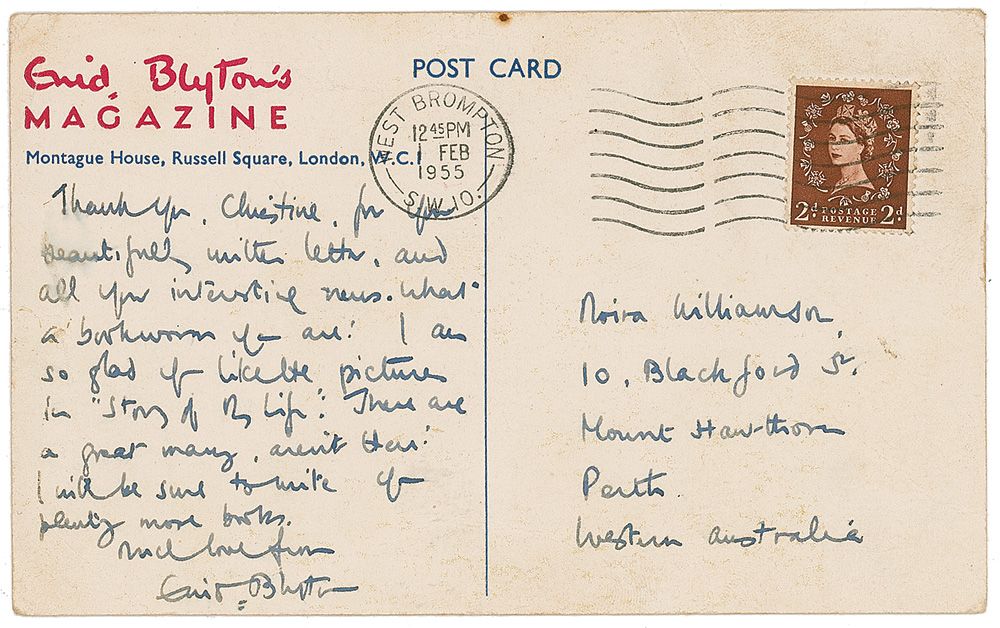 Enid Blyton's
MAGAZINE
Montague House, Russell Square, London, W.C.1
POST CARD
WEST BROMPTON
12 45 PM
1 FEB
1955
S.W.10.
2d POSTAGE REVENUE 2d
Thank you, Christine, for your
beautifully written letter, and
all your interesting news. What
a bookworm you are! I am
so glad you like the pictures
in "Story of My Life". There are
a great many, aren't there!
I will be sure to write you
plenty more books.
Much love from
Enid Blyton
Moira Williamson,
10, Blackford St.
Mount Hawthorn
Perth
Western Australia